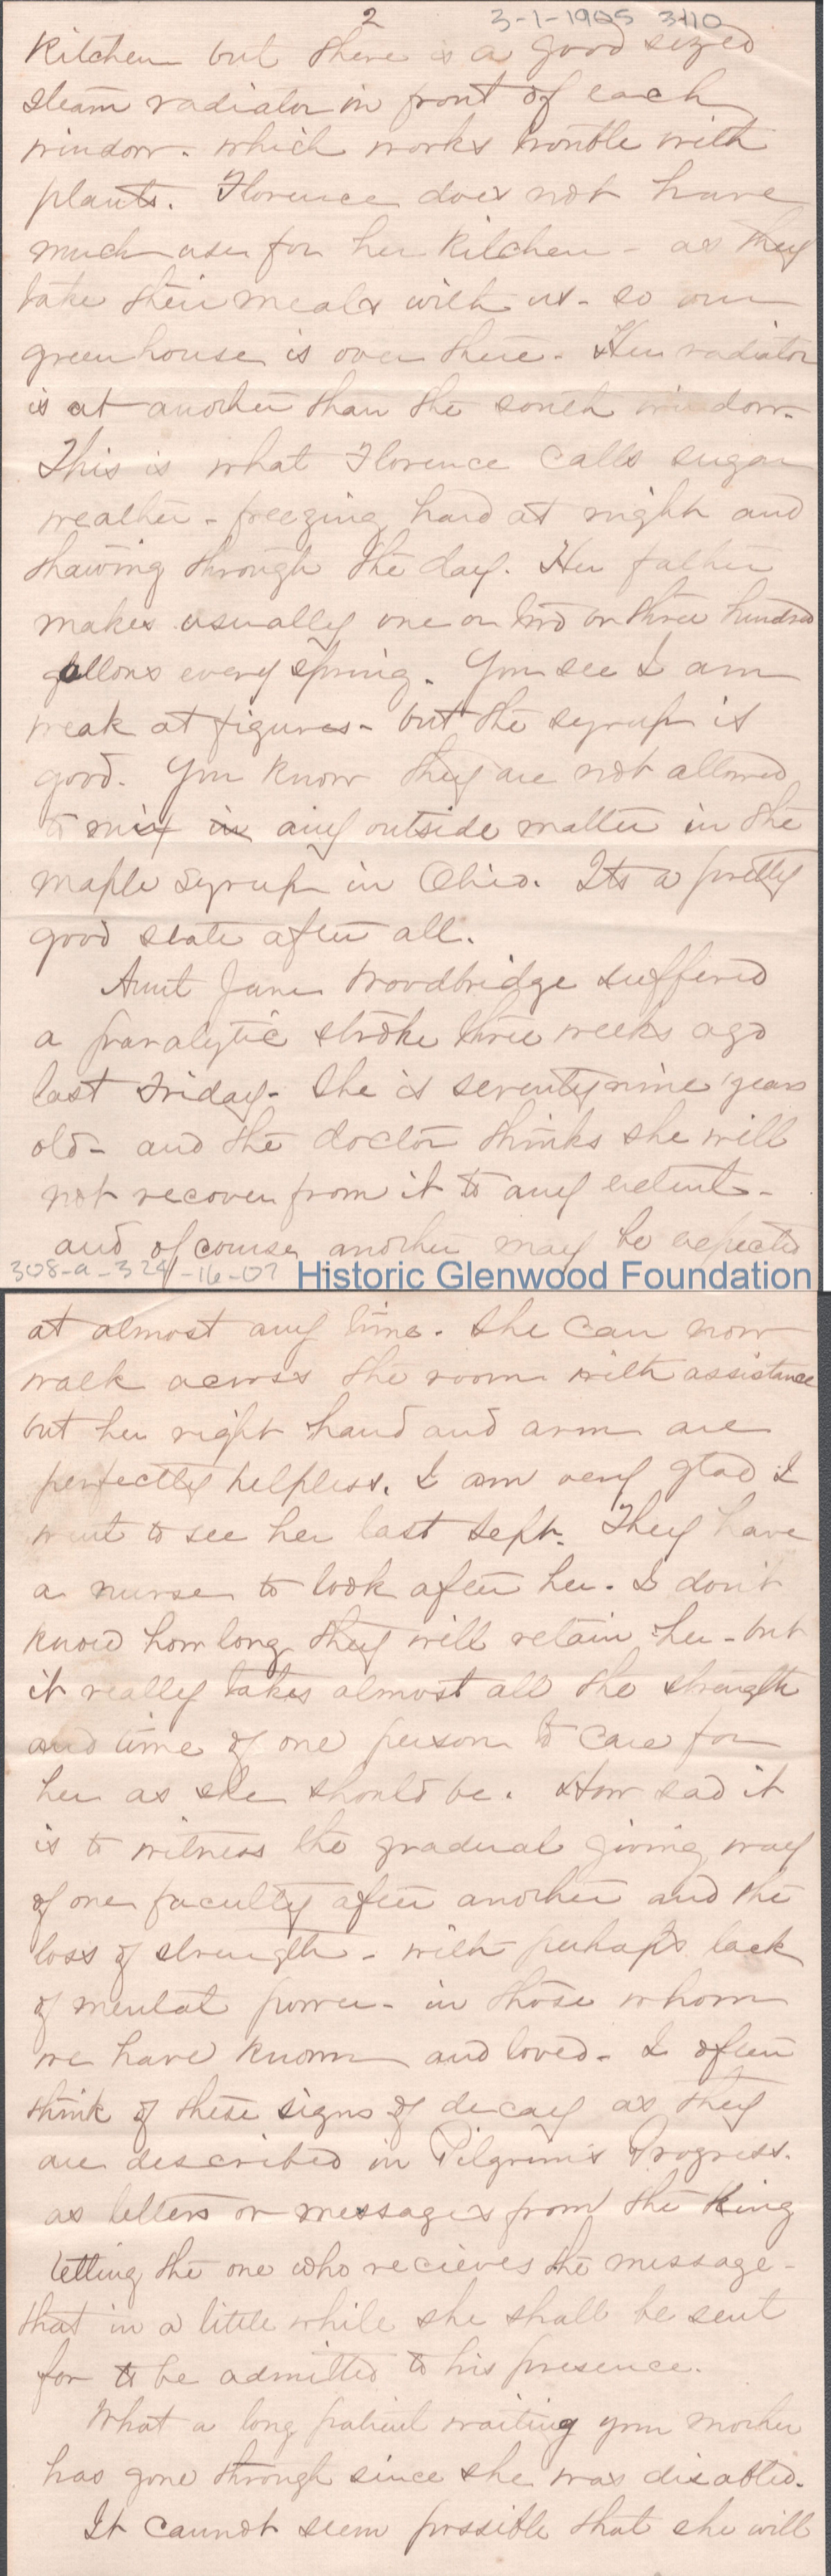 2 3-1-1905 3110
Kitchen but there is a good sized
steam radiator in front of each
window. which works trouble with
plants. Florence does not have
much use for her kitchen - as they
take their meals with us - so our
greenhouse is over there. Her radiator
is at another than the south window.
This is what Florence calls sugar
weather - freezing hard at night and
thawing through the day. Her father
makes usually one or two or three hundred
gallons every spring. You see I am
weak at figures - but the syrup is
good. You know they are not allowed
to mix in any outside matter in the
maple syrup in Ohio. Its a pretty
good state after all.
Aunt Jane Woodbridge suffered
a paralytic stroke three weeks ago
last Friday - She is seventy nine years
old - and the doctor thinks she will
not recover from it to any extent -
and of course another may be expected
308-a-324-16-07 Historic Glenwood Foundation
at almost any time. She can now
walk across the room with assistance
but her right hand and arm are
perfectly helpless. I am very glad I
went to see her last Sept. They have
a nurse to look after her. I don't
know how long they will retain her - but
it really takes almost all the strength
and time of one person to care for
her as she should be. How sad it
is to witness the gradual giving way
of one faculty after another and the
loss of strength - with perhaps lack
of mental power - in those whom
we have known and loved - I often
think of these signs of decay as they
are described in Pilgrim's Progress.
as letters or messages from the King
letting the one who recieves the message -
that in a little while she shall be sent
for to be admitted to his presence.
What a long patient waiting your mother
has gone through since she was disabled.
It cannot seem possible that she will